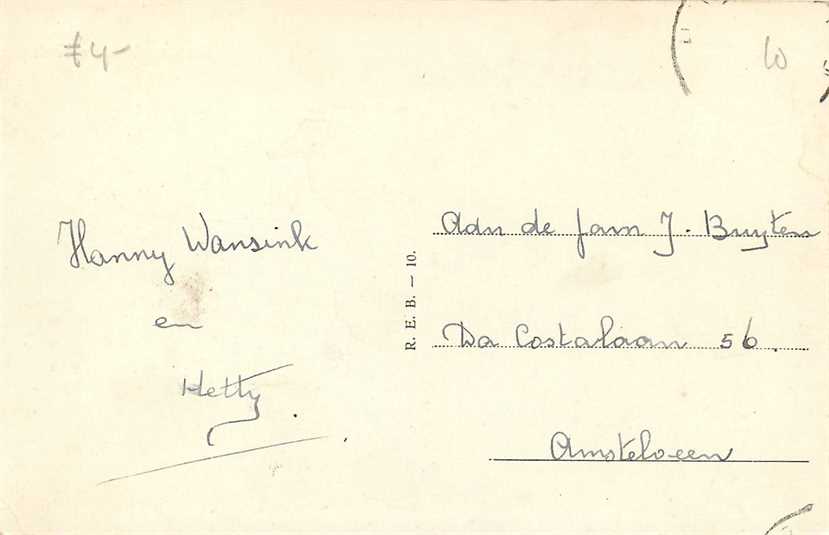 £4-
10
Hanny Wansink
en
Hetty.
R. E. B. — 10.
Aan de fam J. Buyten
Da Costalaan 56.
Amstelveen